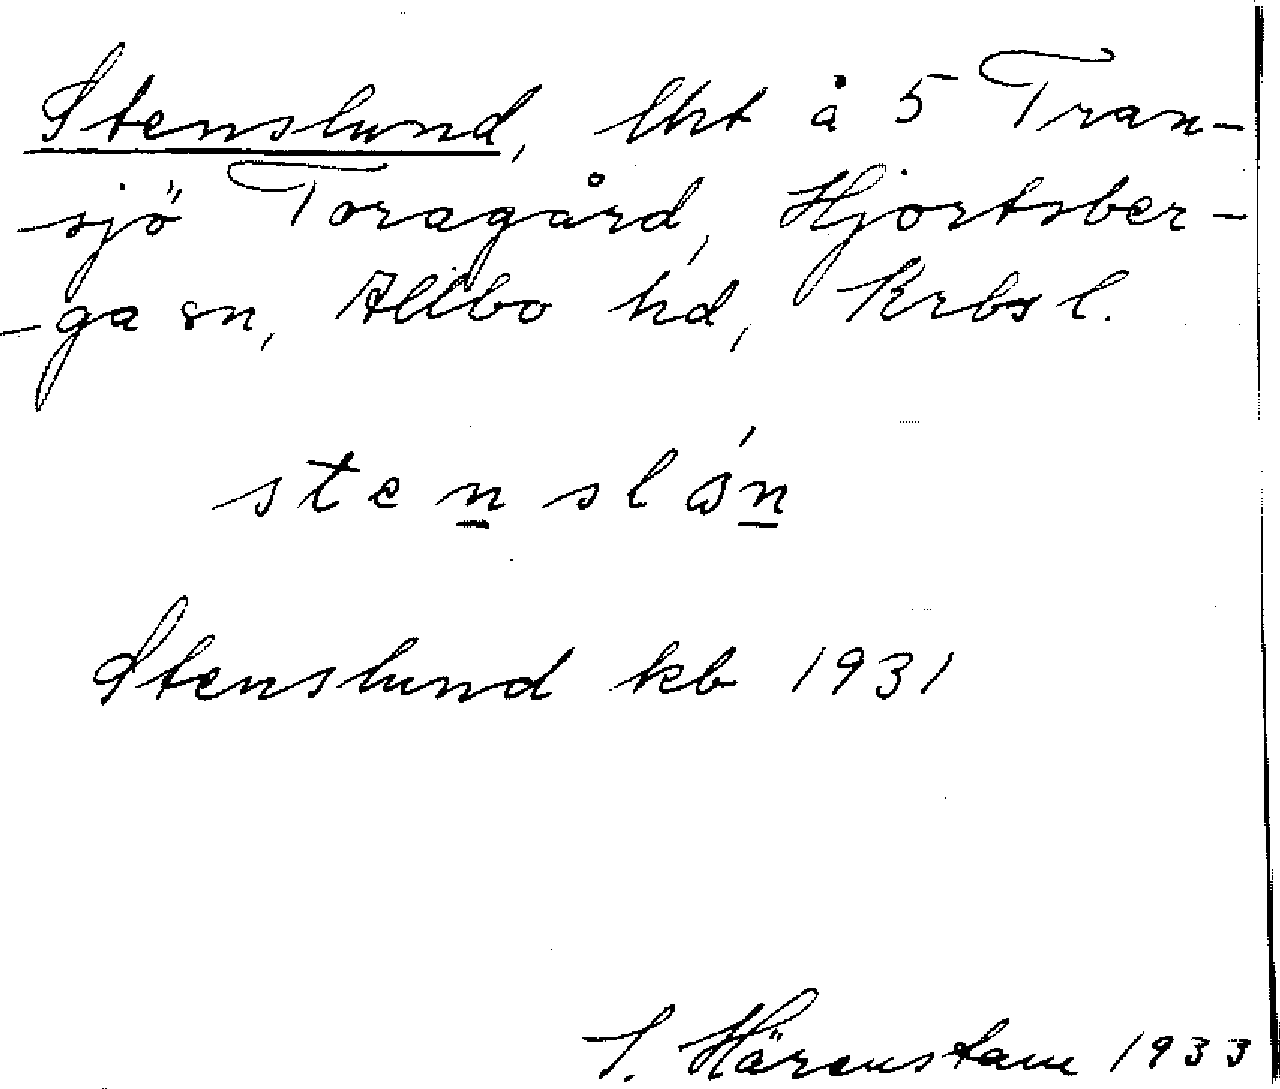 Stenslund, lht å 5 Tran-
-sjö Toragård, Hjortsber-
-ga sn, Allbo hd, Krbs l.
stenslán
Stenslund kb 1931
Härenstam 1933